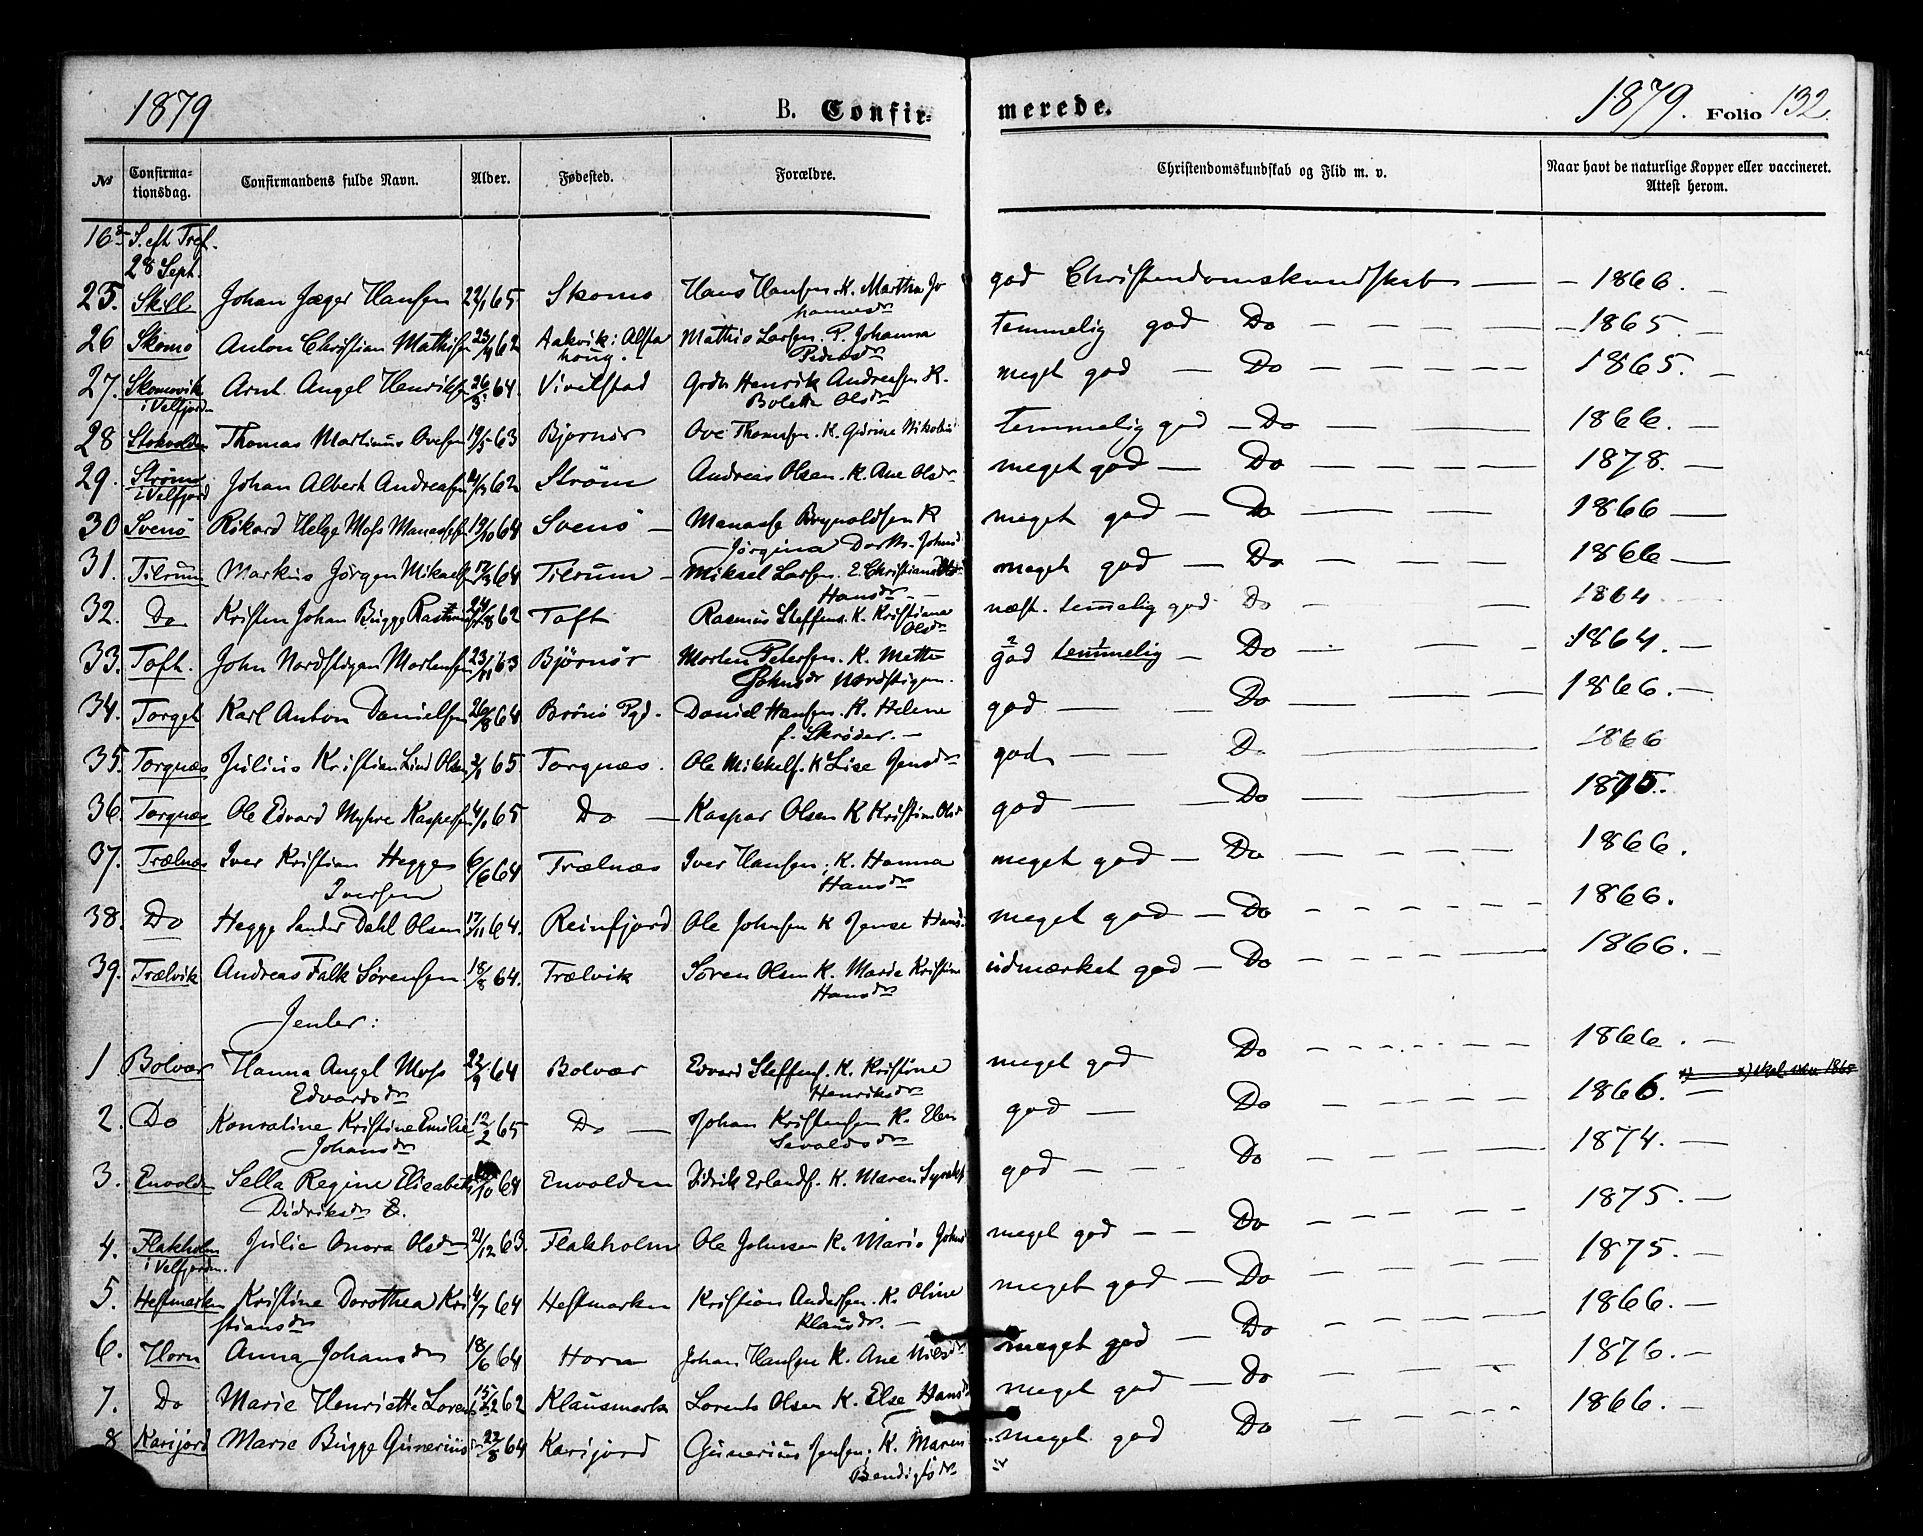 1879 B. Confir- merede. 1879. Folio 132.
№ Confirmationsdag. Confirmandens fulde Navn. Alder. Fødested. Forældre. Christendomskundskab og Flid m. v. Naar havt de naturlige Kopper eller vaccineret. Attest herom.
16de S. eft Tref.
28 Sept.
25. Skill Johan Jæger Hansen 22/1 65 Skomo Hans Hansen. K. Martha Jo god Christendomskundskab — 1866.
hannesdr
26 Skomo Anton Christian Mathisen 62 Aakvik i Alsta Mathis Larsen. P. Johanna temmelig god Do — 1865.
houg. Pedersdr
27. Skomovik Arnt Angel Henriksen 26/3 64. Vivelstad Grdbr Henrik Andreasen K. meget god — Do — 1865.
i Velfjord Bolette Olsdr
28 Stokvolden Thomas Martinus Ovesen 19/5 63 Bjørnør Ove Thomesen. K. Nikolais temmelig god — Do — 1866.
29. Strøm Johan Albert Andreasen 62 Strøm Andreas Olsen. K. Ane Olsdr meget god — Do — 1878.
i Velfjord
30 Svenø Rikard Helge Moss Manassesen 19/10 64 Svenø — Manasse Brynoldsen K meget god — Do — 1866
Jørgina Dorth. Johnsd
31. Tilrum Markus Jørgen Mikaelsen 64 Tilrum — Mikael Larsen. E. Christiane meget god — Do — 1866
Hansdr
32. Do Kristen Johan Bugge Rasmus 24/8 62 Toft Rasmus Steffens. K. Kristiana næst. temmelig god Do — 1864
Olsdr
33. Toft. John Nordstigan Mortensen 23/11 63 Bjørnør Morten Petersen. K. Mette god temmelig — Do — 1864.
Johnsdr Nordstigen.
34. Torget Karl Anton Danielsen 26/8 64 Brönö Pgd. Daniel Hansen. K. Helene god — Do — 1866.
f. Skrøder.
35. Torgnæs Julius Kristian Lind Olsen 2/1 65. Torgnæs. Ole Mikkels. K Lise Jensdr god — Do — 1866
36. Torgnæs Ole Edvard Myhre Kaspersen 65 Do — Kaspar Olsen K Kristine Olsd god — Do — 1875.
37. Trælnæs Iver Kristian Hegge 6/6 64 Trælnæs Iver Hansen. K. Hanna meget god — Do — 1866.
Iversen Hansdr
38. Do Hegge Sander Dahl Olsen 17/11 64. Reinfjord Ole Johnsen K Jense Hansd. meget god — Do — 1866.
39. Trælvik Andreas Falk Sørensen 18/8 64. Trælvik Søren Olsen K. Marie Kristine udmærket god — Do — 1866.
Hansdr
Jenter:
1 Bolvær Hanna Angel Moss 22/9 64 Bolvær Edvard Steffens. K. Kristine meget god Do — 1866.
Edvardsdr Henriksdr
2. Do Konratine Kristine Emilie 12/2 65 Do — Johan Kristensen K. Elen god — Do — 1866.
Johansdr Sevaldsdr
3. Envolden Sella Regine Elisabeth 64 Envolden Didrik Erlands. K. Maren god — Do 1874.
Didriksdr
4. Flakholm Julie Onora Olsdr 21/12 63. Flakholm Ole Johnsen K. Maris Johnsd meget god — Do — 1875.
i Velfjorden.
5. Heftmarken Kristine Dorothea Kri 4/7 64 Heftmarken Kristian Andersen. K. Oline meget god — Do 1875.
stiansdr Klausdr.
6. Horn Anna Johansdr 18/6 64 Horn Johan Hansen K. Ane Nilsdr meget god — Do — 1866.
7. Do Marie Henriette Lorents 15/12 62 Klausmark Lorents Olsen K. Else Hansd meget god — Do 1876.
8 Karijord Marie Bugge Gunerius dr 22/8 64 Karijord Gunerius Jensen. K. Maren meget god Do 1866.
Bendigtsdr